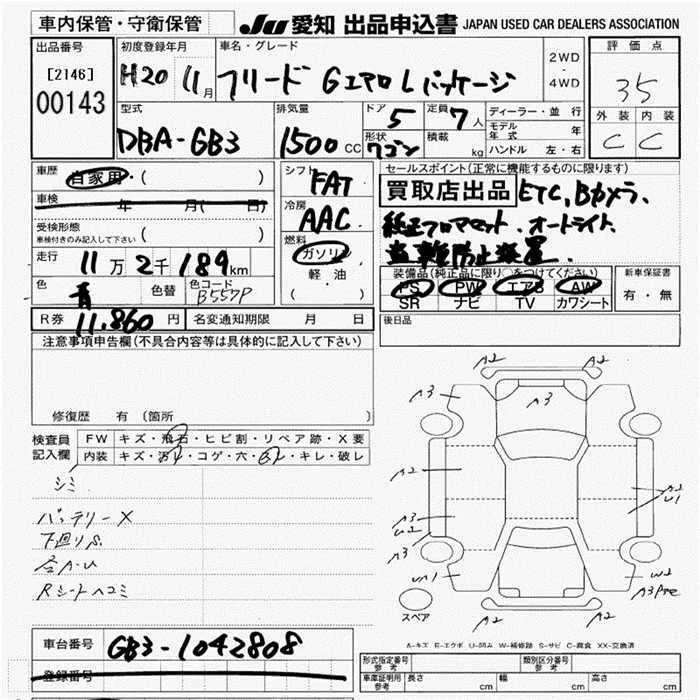 車内保管・守衛保管
JU 愛知 出品申込書 JAPAN USED CAR DEALERS ASSOCIATION
出品番号
[2146]
00143
初度登録年月
H20 11月
車名・グレード
フリード GエアロLパッケージ
2WD
・
4WD
評価点
35
外装 内装
C C
型式
DBA-GB3
排気量
1500 CC
ドア 5
形状 ワゴン
定員 7人
積載 kg
ディーラー・並行
モデル年式 年
ハンドル 左・右
車歴
自家用・( )
車検 年 月( 日)
受検形態
車検付きのみ記入して下さい ( )
走行 11万2千189km
色 青 色替 色コード B557P
シフト FAT
冷房 AAC
燃料
ガソリン
軽油
( )
セールスポイント(正常に機能するものに限ります)
買取店出品 ETC,Bカメラ,
純正フロアマット、オートライト
盗難防止装置
装備品(純正品に限り○をつけてください)
PS PW エアB AW
SR ナビ TV カワシート
新車保証書
有・無
R券 11,860円 名変通知期限 月 日
後日品
注意事項申告欄(不具合内容等は具体的に記入して下さい)
修復歴 有(箇所
検査員記入欄
FW キズ・飛石・ヒビ割・リペア跡・X要
内装 キズ・汚れ・コゲ・穴・スレ・キレ・破レ
シミ
バッテリーX
下回りS
全A-U
Rシートヘコミ
A2 A2
A3
A3
A2
A2
U1
A3
U2
A3
U1
W2
A3Pre
A2 A2
スペア
A-キズ E-エクボ U-凹み W-補修跡 S-サビ C-腐食 XX-交換済
車台番号 GB3-1042808
登録番号
形式指定番号 参考
類別区分番号 参考
車庫証明用 参考 長さ cm 幅 cm 高さ cm